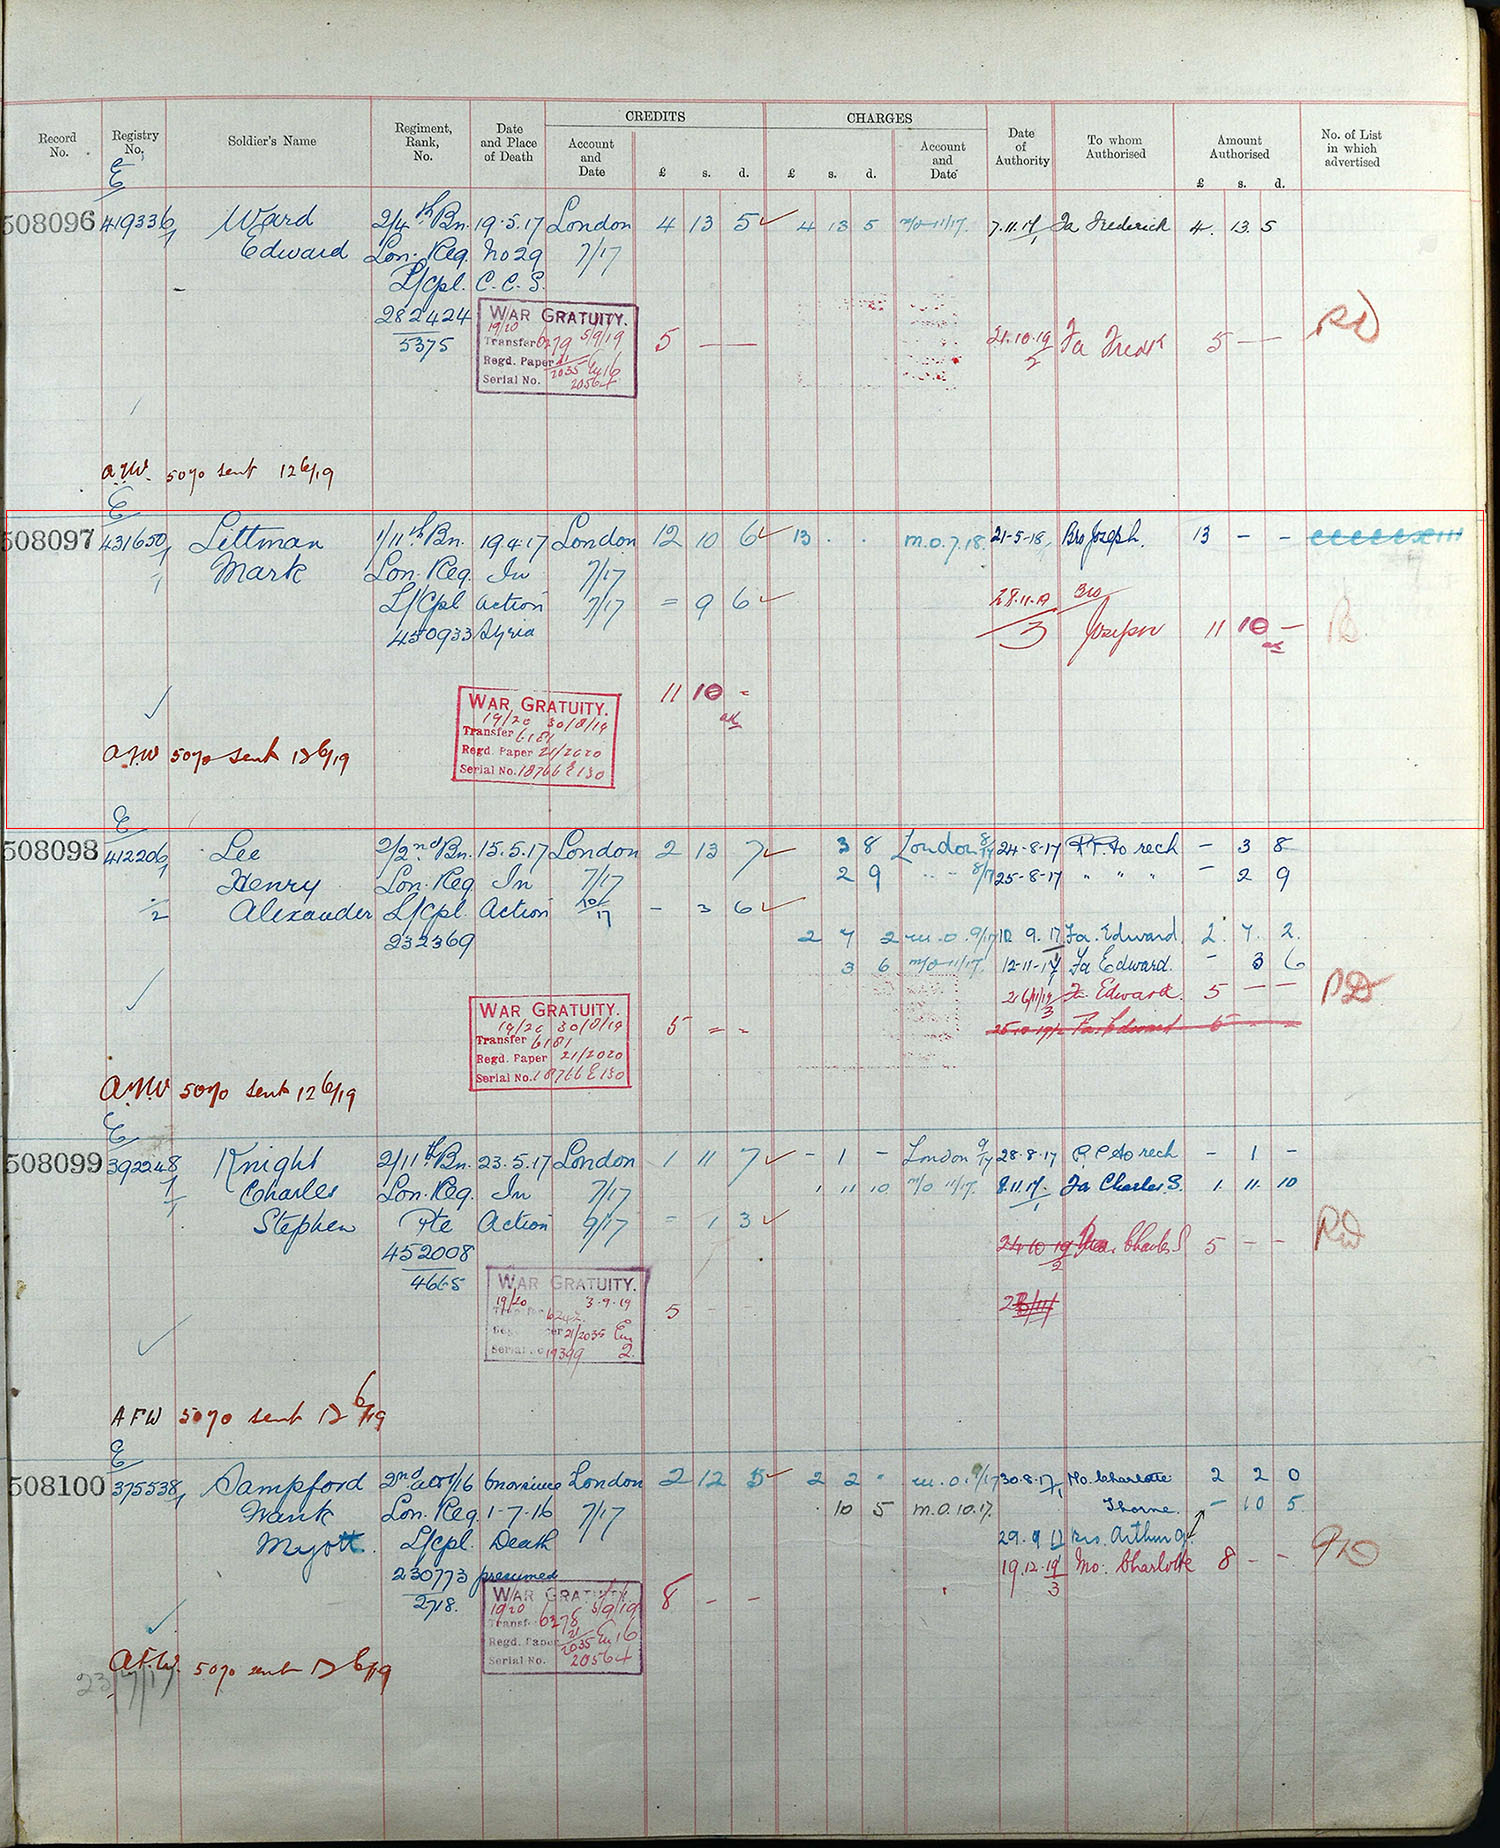 CREDITS CHARGES
Record No. Registry No. Soldier's Name Regiment, Rank, No. Date and Place of Death Account and Date £ s. d. £ s. d. Account and Date Date of Authority To whom Authorised Amount Authorised £ s. d. No. of List in which advertised
E
508096 419336/1 Ward 2/4th Bn. 19.5.17 London 4 13 5 4 13 5 m/o 11/17. 7.11.17/1 Fa Frederick 4. 13. 5
Edward Lon. Reg. No 29 7/17
L/Cpl. C.C.S.
282424
5375
WAR GRATUITY.
19/20 5/9/19
Transfer 6279
Regd. Paper 21/2035 En 16
Serial No. 20564
5 — — 21.10.19/2 Fa Fredk 5 — —
A.F.W. 5070 sent 12/6/19
E
508097 431650/1 Littman 1/11th Bn. 19.4.17 London 12 10 6 13 . . m.o.7.18. 21-5-18 Bro Joseph. 13 - -
Mark Lon. Reg. In 7/17
L/Cpl Action 7/17 = 9 6 28.11.19/3 Bro
450933 Syria Joseph 11 10 —
11 10 =
WAR GRATUITY.
19/20 30/8/19
Transfer 6181
Regd. Paper 21/2020
Serial No. 18766 E 130
A.F.W 5070 sent 12/6/19
E
508098 412206/1 Lee 2/2nd Bn. 15.5.17 London 2 13 7 3 8 London 8/17 24-8-17 to rech — 3 8
Henry Lon. Reg In 7/17 2 9 " - 8/17 25-8-17 " " " — 2 9
Alexander L/Cpl. Action 10/17 - 3 6
232369 2 7 2 m.o. 9/17 10 9.17 Fa. Edward 2. 7. 2.
3 6 m/o 11/17. 12-11-17 Fa Edward. — 3 6
Fa Edward. 5 — —
WAR GRATUITY.
19/20 30/8/19
Transfer 6181
Regd. Paper 21/2020
Serial No. 18766 E 130
5 = -
Fa. Edward 5 - -
A.F.W 5070 sent 12/6/19
E
508099 392248/1 Knight 2/11th Bn. 23.5.17 London 1 11 7 - 1 - London 9/17 28.8.17 to rech - 1 -
Charles Lon. Reg. In 7/17 1 11 10 m/o 11/17. 8.11.17/1 Fa Charles S. 1. 11. 10
Stephen Pte Action 9/17 = 1 3
452008 24 10 19/2 Charles S 5 - -
4665
WAR GRATUITY.
19/20 3.9.19
Regd. Paper 21/2035 En 2
Serial No. 19399
5 - -
AFW 5070 sent 12/6/19
E
508100 375538/1 Sampford London 2 12 5 2 2 - m.o. 9/17 30.8.17/1 Mo. Charlotte 2 2 0
Frank Lon. Reg. 1-7-16 7/17 10 5 m.o.10.17. Thorne. - 10 5
Myott. L/cpl. Death 29.9 Arthur G.
230773 presumed 19.12.19/3 Mo. Charlotte 8 - -
2718.
WAR GRATUITY
19/20 5/9/19
Transfer 6278
Regd. Paper 21/2035 En 16
Serial No. 20564
8 - -
A.F.W. 5070 sent 12/6/19